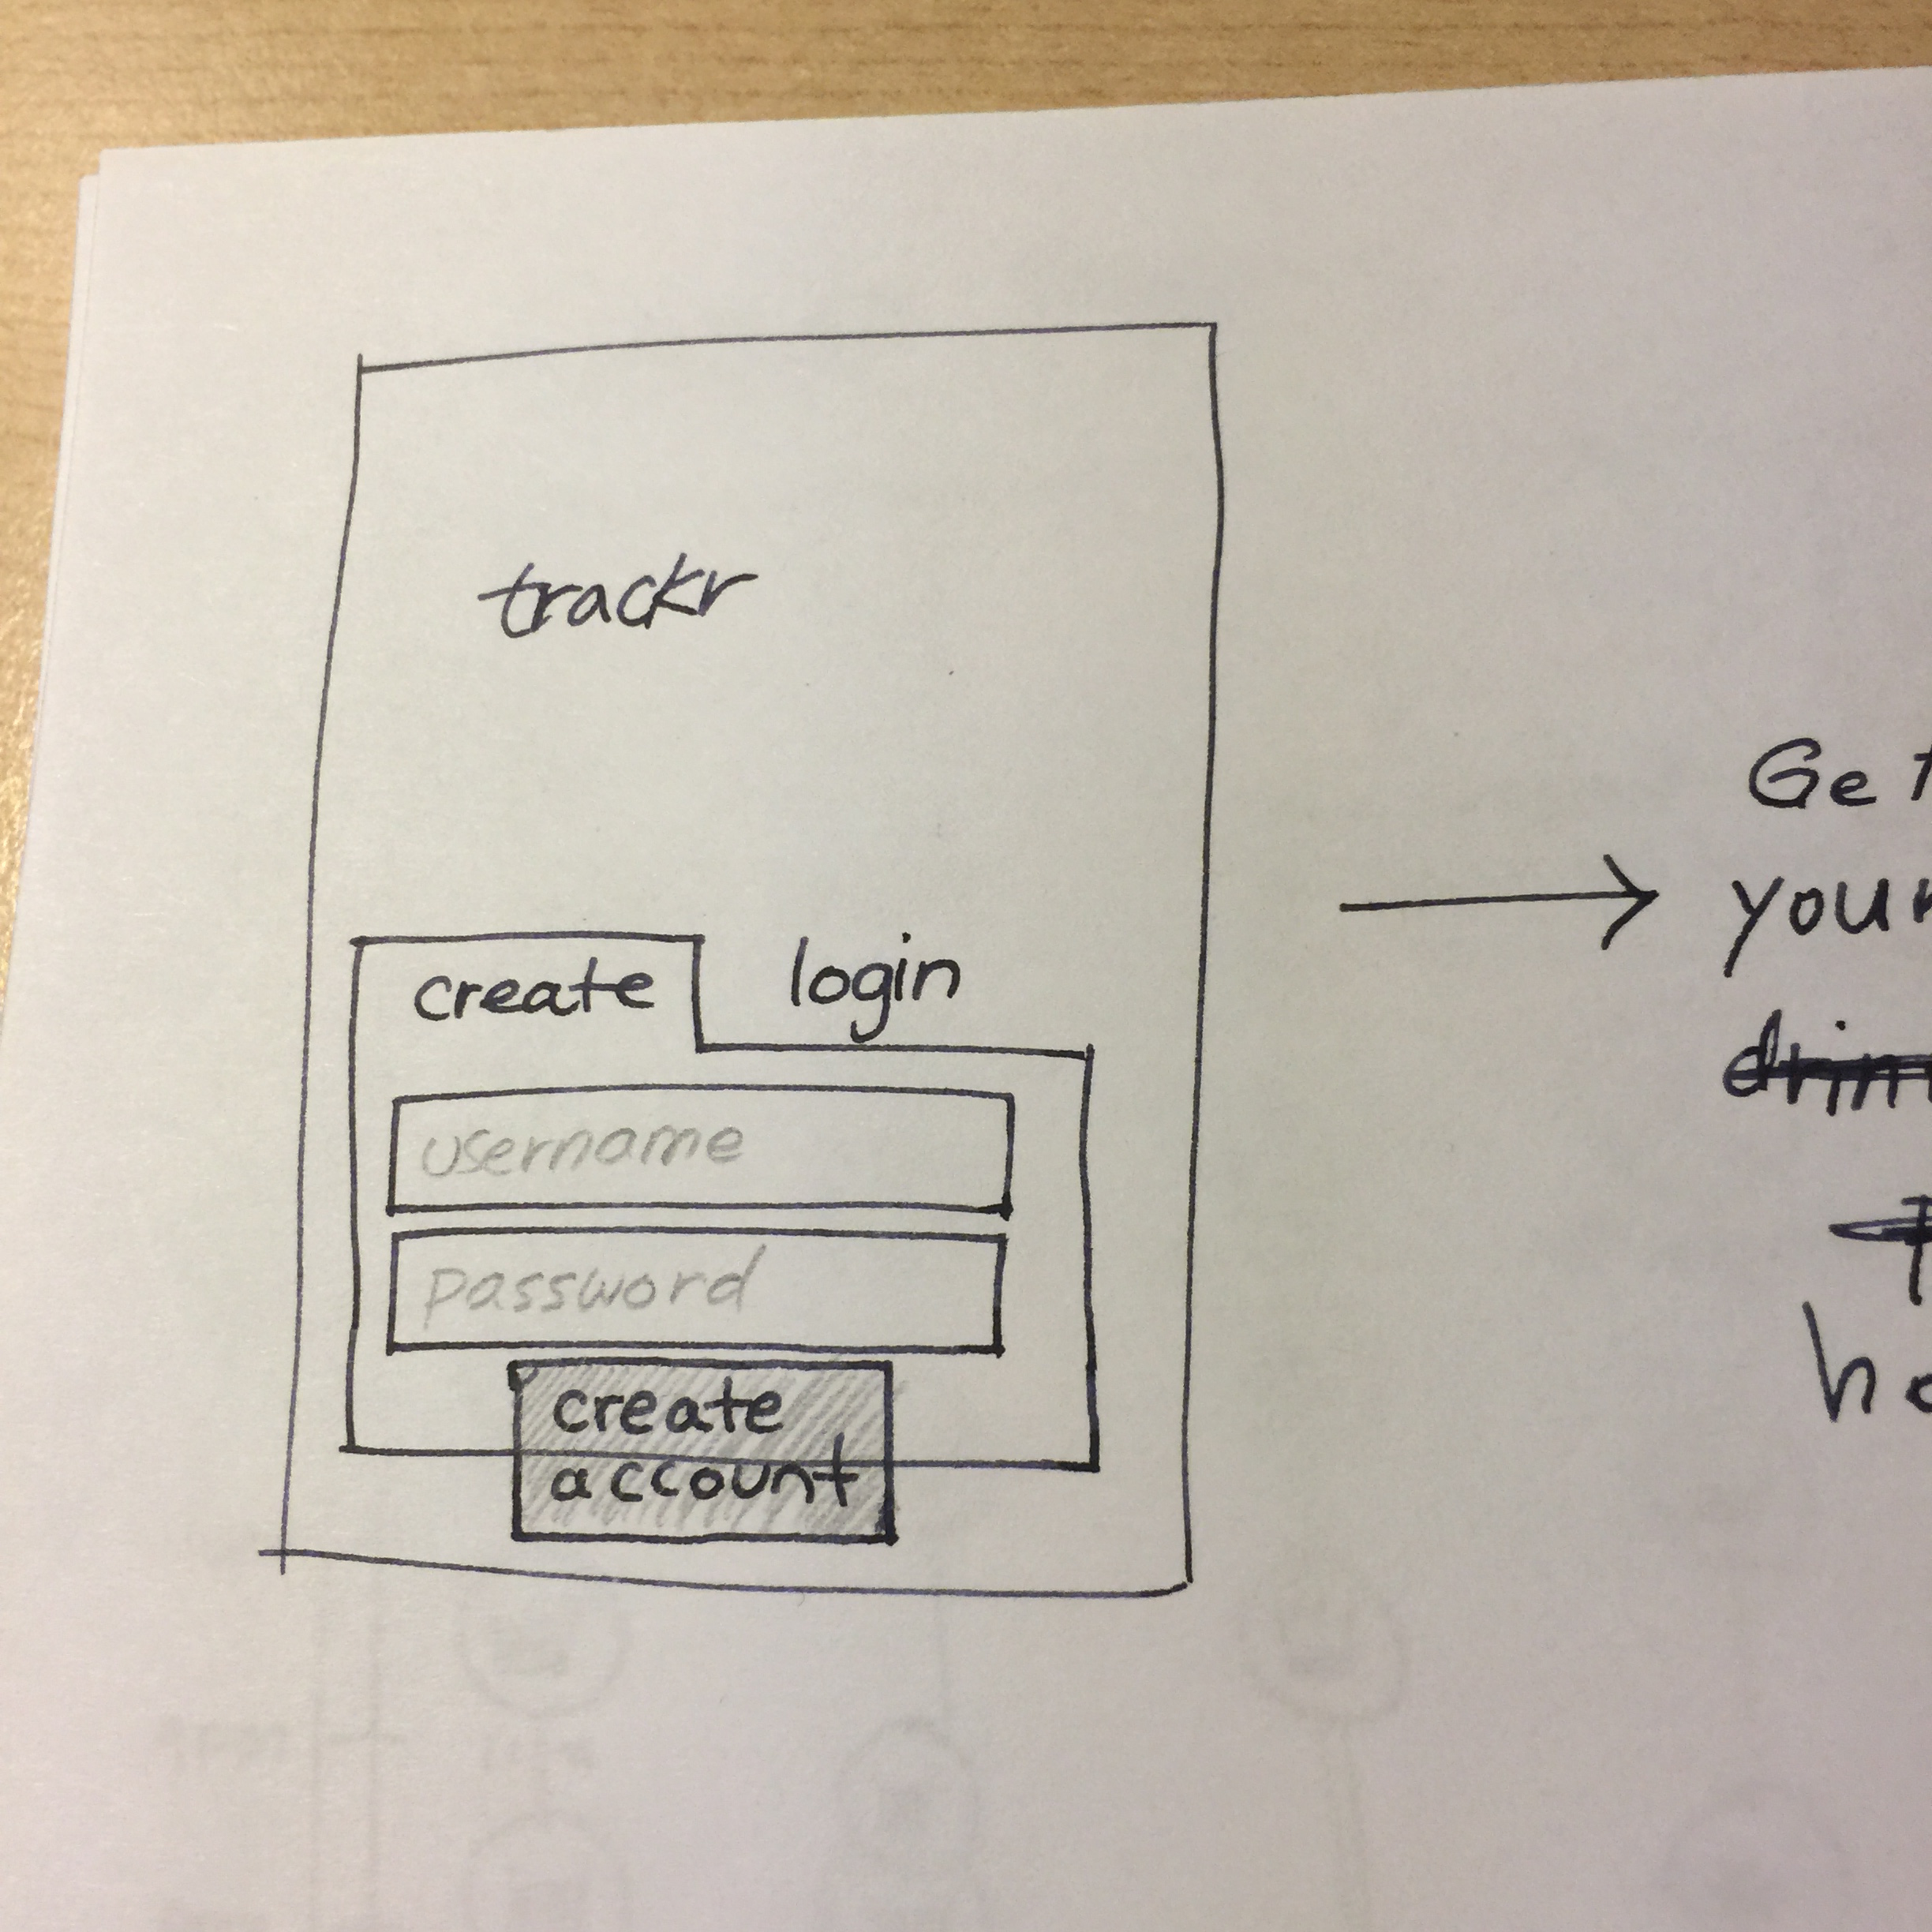 trackr
create login
username
password
create
account
Get
your